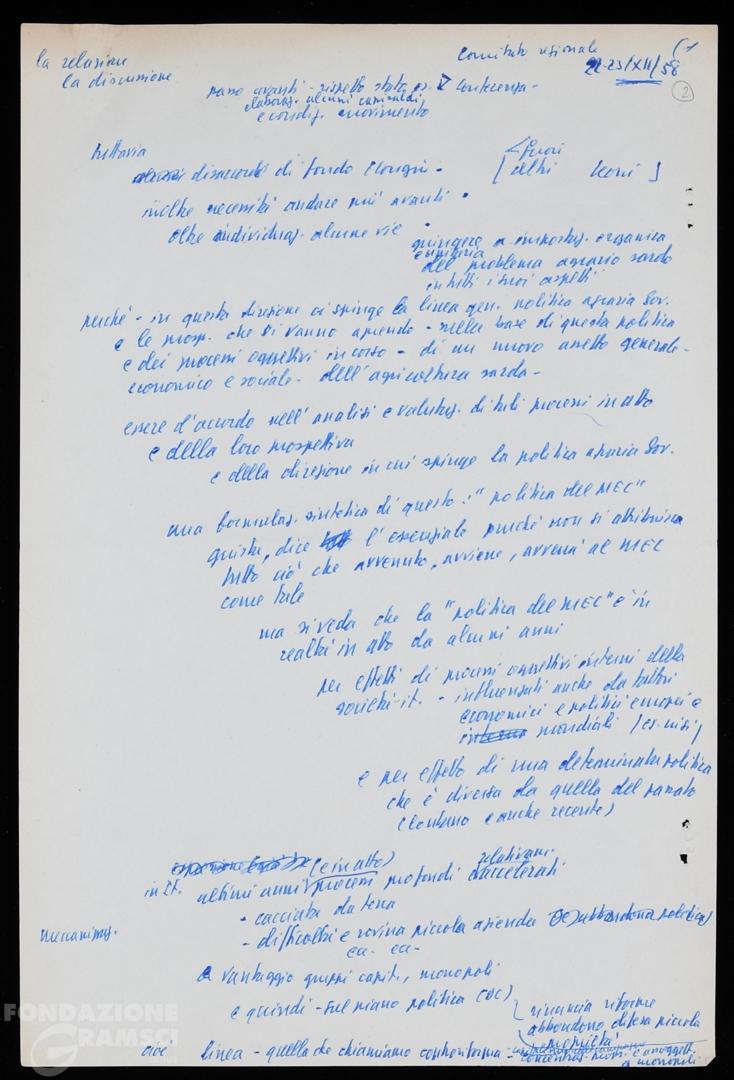 la relazione
la discussione
Comitato regionale (1
22-23/XII/58
2
passo avanti - rispetto stato es. V Conferenza -
elaboraz. alcuni capisaldi
e condiz. movimento
tuttavia
disaccordi di fondo
fuori
[altri leoni]
inoltre necessità andare più avanti.
oltre individuaz. alcune vie
giungere a impostaz. organica
e unitaria
del problema agrario sardo
in tutti i suoi aspetti
perché - in questa direzione ci spinge la linea gen. politica agraria Gov.
e le prosp. che si vanno aprendo - sulla base di questa politica
e dei processi oggettivi in corso - di un nuovo assetto generale -
economico e sociale - dell'agricoltura sarda -
essere d'accordo nell'analisi e valutaz. di tali processi in atto
e della loro prospettiva
e della direzione in cui spinge la politica agraria Gov.
una formulaz. sintetica di questo: "politica del MEC"
giusta, dice l'essenziale purché non si attribuisca
tutto ciò che avvenuto, avviene, avverrà al MEC
come tale
ma si veda che la "politica del MEC" è in
realtà in atto da alcuni anni
per effetti di processi oggettivi interni della
società it. - influenzati anche da fattori
economici e politici europei e
mondiali (es. crisi)
e per effetto di una determinata politica
che è diversa da quella del passato
(lontano e anche recente)
(e in atto) relativam.
in It. ultimi anni processi profondi accelerati
- cacciata da terra
meccanizz.
- difficoltà e rovina piccola azienda abbandona politica)
ecc. ecc.
a vantaggio gruppi capit., monopoli
e quindi - sul piano politico (DC)
rinuncia riforme
abbandono difesa piccola
proprietà
cioè linea - quella che chiamiamo controriforma - concentraz. propr. e assoggett.
a monopoli
FONDAZIONE
GRAMSCI